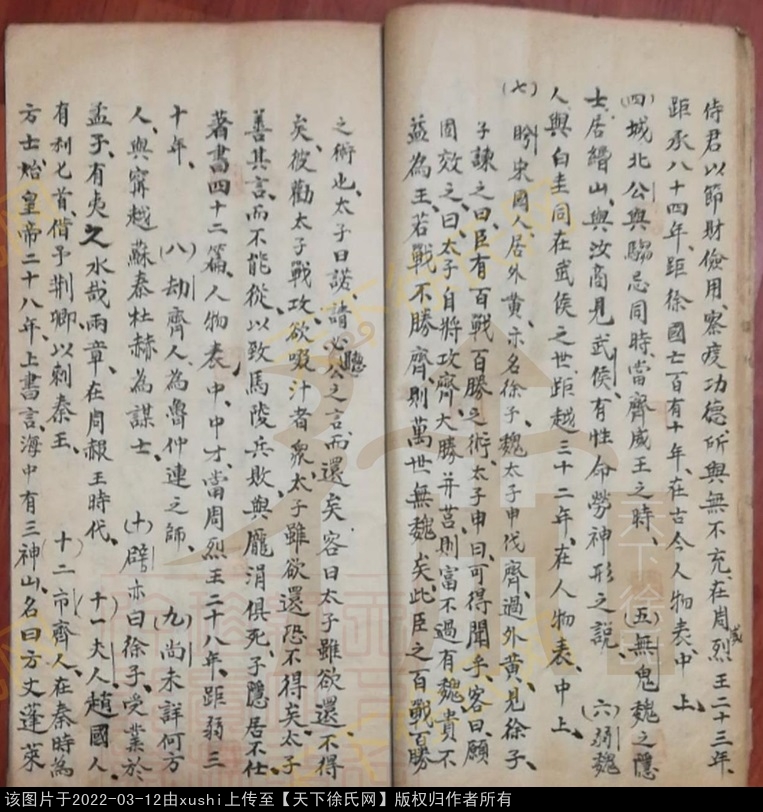 侍君以節財儉用、察度功德、所與無不充、在周烈王二十三年、
威
距承八十四年、距徐國亡百有十年、在古今人物表、中上、
(四)城北公與騶忌同時、當齊威王之時、 (五)無鬼魏之隱
士、居緡山、與汝商見武侯、有性命勞神形之說、 (六)弱魏
人、與白圭同在武侯之世、距越三十二年、在人物表、中上、
(七) 盻宋國人、居外黃、亦名徐子、魏太子申伐齊、過外黃、見徐子、
子諫之曰、臣有百戰百勝之術、太子申曰、可得聞乎、客曰、願
固效之、曰、太子自將攻齊、大勝并莒、則富不過有魏、貴不
益為王、若戰不勝齊、則萬世無魏矣、此臣之百戰百勝
之術也、太子曰諾、請必公之言、而還矣、客曰太子雖欲還、不得
聽
矣、彼勸太子戰攻、欲啜汁者衆、太子雖欲還、恐不得矣、太子
善其言、而不能從、以致馬陵兵敗、與龐涓俱死、子隱居不仕
著書四十二篇、人物表、中中才、當周烈王二十八年、距弱三
十年、 (八)劫齊人、為魯仲連之師、 (九)尚未詳何方
人、與甯越蘇秦杜赫為謀士、 (十)辟亦曰徐子、受業於
孟子、有夷之水哉兩章、在周赧王時代、 (十一)夫人、趙國人、
有利匕首、借予荆卿以刺秦王、 十二市齊人、在秦時為
方士、始皇帝二十八年、上書言、海中有三神山、名曰方丈蓬萊
天下徐氏
该图片于2022-03-12由xushi上传至【天下徐氏网】版权归作者所有